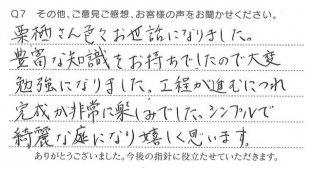 Q7 その他、ご意見ご感想、お客様の声をお聞かせください。
栗栖さん色々お世話になりました。
豊富な知識をお持ちでしたので大変
勉強になりました。工程が進むにつれ
完成が非常に楽しみでした。シンプルで
綺麗な庭になり嬉しく思います。
ありがとうございました。今後の指針に役立たせていただきます。